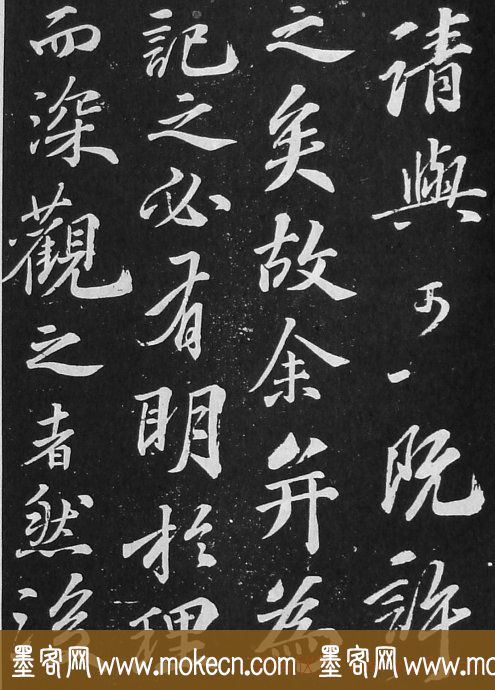 請與々可々既許
之矣故余并為
記之必有明於理
而深觀之者然後
墨客网 www.mokecn.com 墨客网 www.mokecn.com